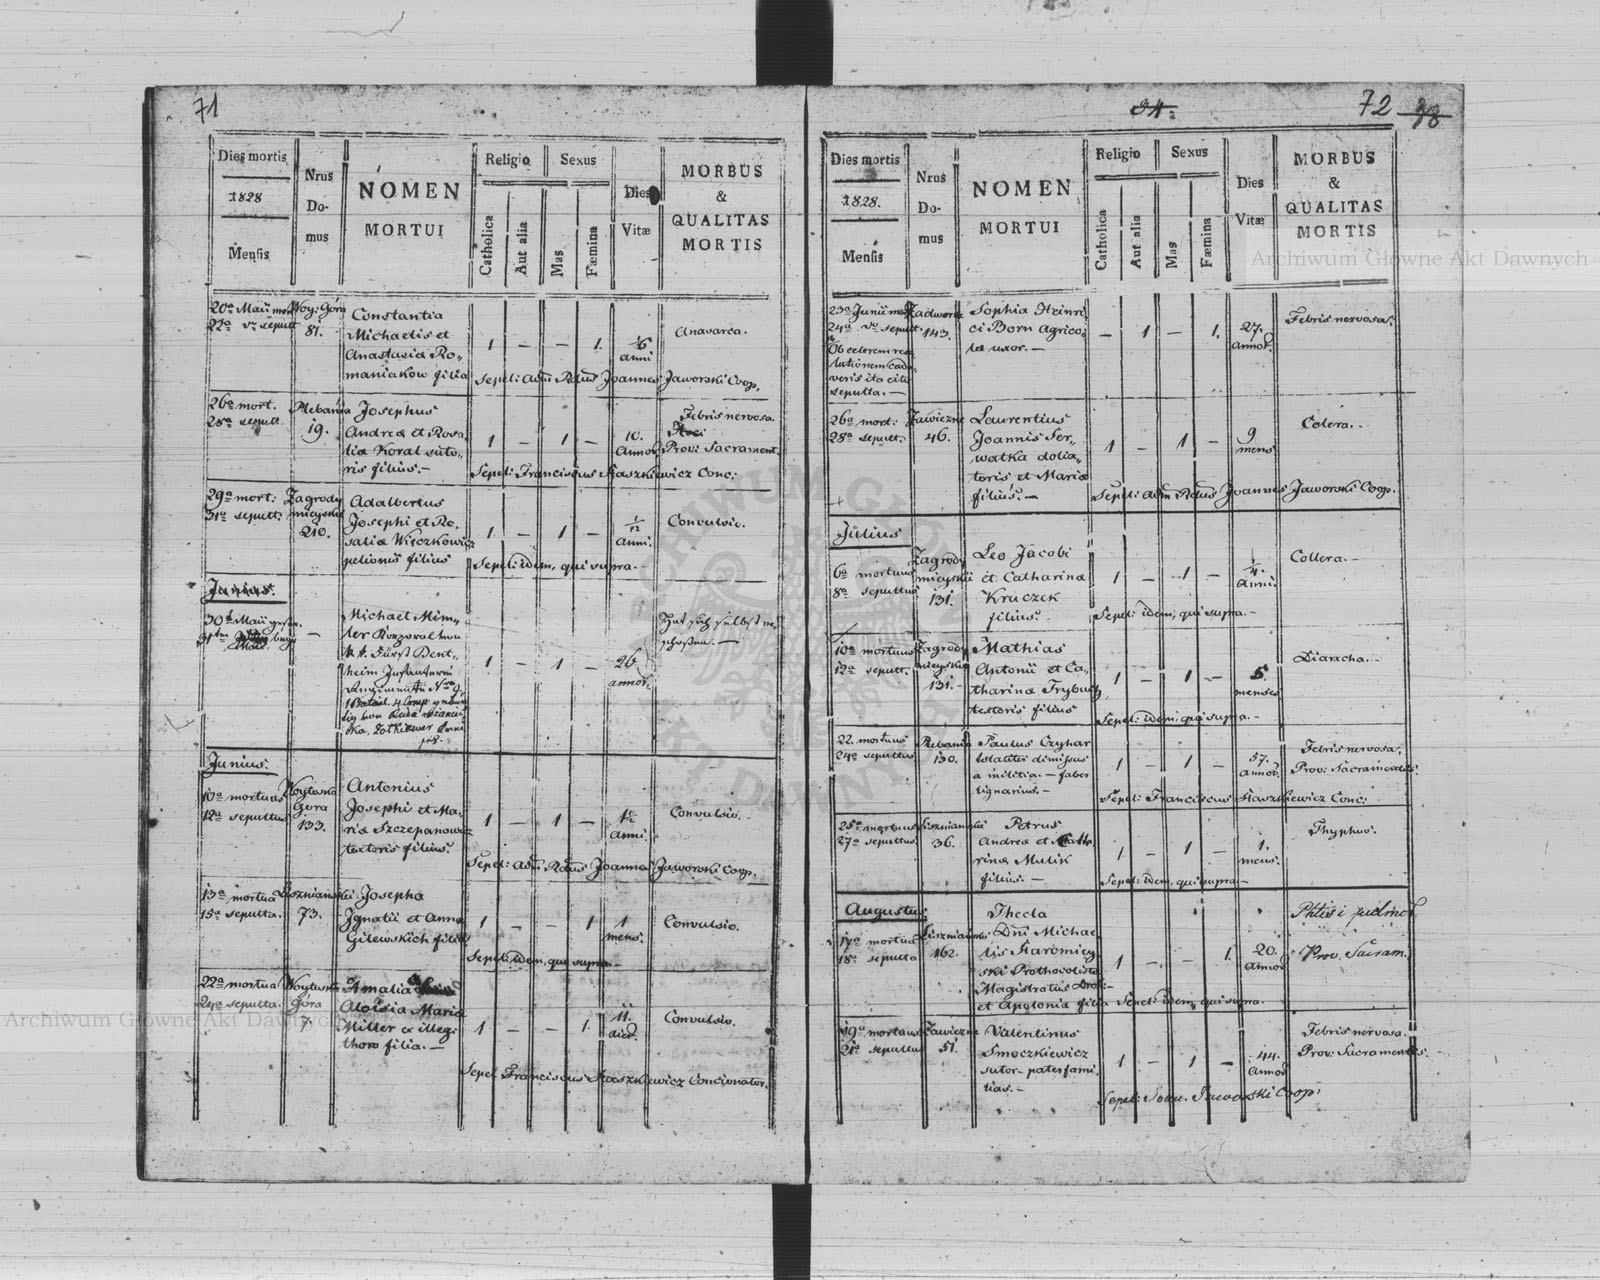 71
Dies mortis
1828
Mensis
Nrus
Do-
mus
NOMEN
MORTUI
Religio
Catholica
Aut alia
Sexus
Mas
Fæmina
Dies
Vitæ
MORBUS
&
QUALITAS
MORTIS
20a Maii mort
22a sepult
Woy: Góra
81.
Constantia
Michaelis et
Anastasiæ Ro„
maniakow filia
1 — — 1.
1/6
anni
Anavarca.
Sepel: Adm Rdus Joannes Jaworski Coop.
26a mort.
28a sepult
Plebania
19.
Josephus
Andreæ et Rosa„
liæ Koral suto„
ris filius.—
1 — 1 —
10.
Annor
Febris nervosa.
Prov: Sacrament.
Sepel: Franciscus Staszkiewicz Conc:
29a mort:
31a sepult:
Zagrody
mieyskie
210.
Adalbertus
Josephi et Ro„
saliæ Wieczkowicz
pelionis filius
1 — 1 —
1/12
anni.
Convulsio.
Sepel: idem, qui supra.—
Junius.
30t Maii
—
Michael
26
annor.
1 — 1 —
Junius.
10a mortuus
12a sepultus
Woytowa
Gora
133.
Antonius
Josephi et Ma„
riæ Szczepanowicz
textoris filius.
1 — 1 —
1½
anni
Convulsio.
Sepel: Adm Rdus Joannes Jaworski Coop.
13a mortua
15a sepulta.
Liszniańskie
73.
Josepha
Ignatii et Annæ
Gilewskich filia
1 — — 1
1
mens.
Convulsio.
Sepel: idem, qui supra—
22a mortua
24a sepulta.
Woytowa
Góra
7.
Amalia
Aloisia Maria
Miller ex illeg:
thoro filia.—
1 — — 1.
11.
dier.
Convulsio.
Sepel: Franciscus Staszkiewicz Concionator.
72
Dies mortis
1828.
Mensis
Nrus
Do-
mus
NOMEN
MORTUI
Religio
Catholica
Aut alia
Sexus
Mas
Fæmina
Dies
Vitæ
MORBUS
&
QUALITAS
MORTIS
23a Junii mort
24a sepult.
Ob celerem
veris ita cito
sepulta.—
Zadworna
143.
Sophia Henri„
ci Born agrico„
læ uxor.—
— 1 — 1.
27.
annor.
Febris nervosa.
26a mort:
28a sepult:
Zawiezne
46.
Laurentius
Joannis Ser„
watka dolia„
toris et Mariæ
filius.—
1 — 1 —
9
mens
Colera.
Sepel: Adm Rdus Joannes Jaworski Coop.
Julius
6a mortuus
8a sepultus
Zagrody
mieyskie
131.
Leo Jacobi
et Catharinæ
Kruczek
filius.
1 — 1 —
1/4.
Anni
Collera.—
Sepel: idem, qui supra.—
10a mortuus
12a sepult.
Zagrody
mieyskie
131.
Mathias
Antonii et Ca„
tharinæ Trybuch
textoris filius
1 — 1 —
5.
menses
Diaracha.—
Sepel: idem, qui supra.—
22. mortuus
24a sepultus
Plebania
130.
Paulus Czyhar
dimissus
a militia.— faber
lignarius.—
1 — 1 —
57.
Annor.
Febris nervosa.
Prov: Sacramentis.
Sepel: Franciscus Staszkiewicz Conc:
25a mortuus
27a sepultus
Liszniańskie
36.
Petrus
Andreæ et Catha
rinæ Mulik
filius.—
1 — 1 —
1.
mens.
Thyphus.
Sepel: idem, qui supra.—
Augustus
17a mortua
18a sepulta
Liszniańskie
162.
Thecla
Dni Michae„
lis Staromiey„
ski Prothocolista
Magistratus
et Apolonia filia
1 — — 1.
20.
Annor
Phtisi pulmo
Prov. Sacram.
Sepel: idem, qui supra.
19a mortuus
21a sepultus
Zawiezne
51.
Valentinus
Smoczkiewicz
sutor pater fami„
lias.—
1 — 1 —
44.
Annor
Febris nervosa.
Prov: Sacramentis.
Sepel: Joan. Jaworski Coop:
Archiwum Główne Akt Dawnych
Archiwum Główne Akt Dawnych
ARCHIWUM GŁÓWNE AKT DAWNYCH